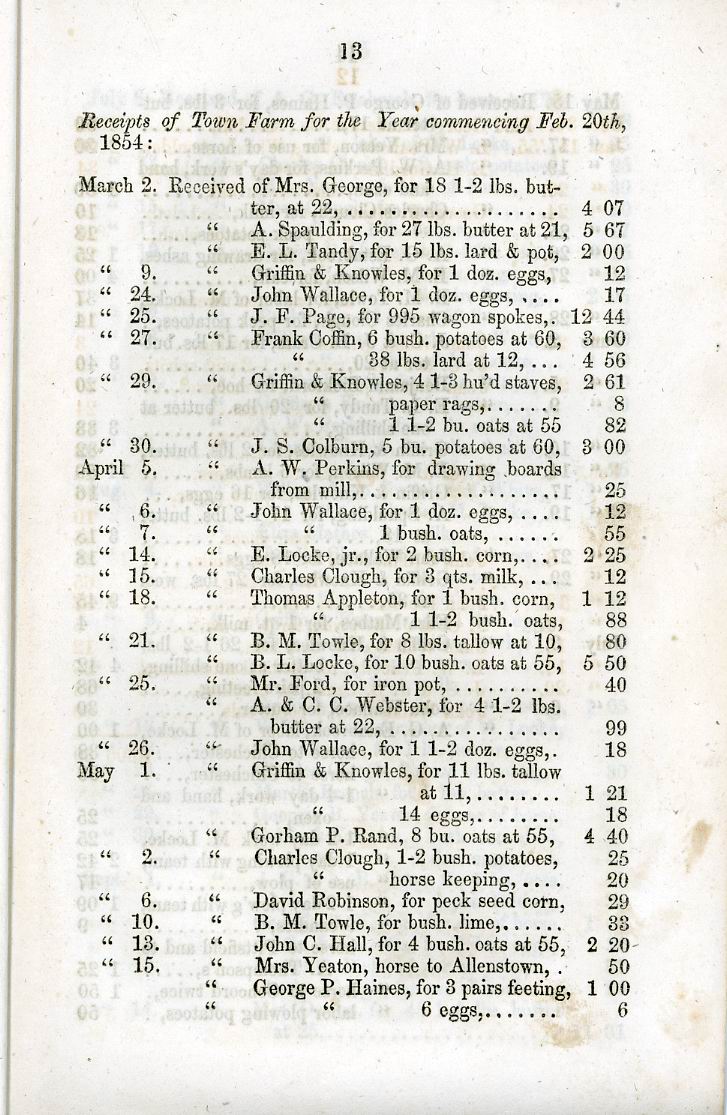 13
Receipts of Town Farm for the Year commencing Feb. 20th,
1854:
March 2. Received of Mrs. George, for 18 1-2 lbs. but-
ter, at 22, . . . . . . . . . . . . . . . . . . . . 4 07
“ A. Spaulding, for 27 lbs. butter at 21, 5 67
“ E. L. Tandy, for 15 lbs. lard & pot, 2 00
“ 9. “ Griffin & Knowles, for 1 doz. eggs, 12
“ 24. “ John Wallace, for 1 doz. eggs, . . . . 17
“ 25. “ J. F. Page, for 995 wagon spokes,. 12 44
“ 27. “ Frank Coffin, 6 bush. potatoes at 60, 3 60
“ 38 lbs. lard at 12, . . . 4 56
“ 29. “ Griffin & Knowles, 4 1-3 hu’d staves, 2 61
“ paper rags,. . . . . . . 8
“ 1 1-2 bu. oats at 55 82
“ 30. “ J. S. Colburn, 5 bu. potatoes at 60, 3 00
April 5. “ A. W. Perkins, for drawing boards
from mill,. . . . . . . . . . . . . . . . . . 25
“ 6. “ John Wallace, for 1 doz. eggs, . . . . 12
“ 7. “ “ 1 bush. oats, . . . . . . 55
“ 14. “ E. Locke, jr., for 2 bush. corn,. . . . 2 25
“ 15. “ Charles Clough, for 3 qts. milk, . . . 12
“ 18. “ Thomas Appleton, for 1 bush. corn, 1 12
“ 1 1-2 bush. oats, 88
“ 21. “ B. M. Towle, for 8 lbs. tallow at 10, 80
“ B. L. Locke, for 10 bush. oats at 55, 5 50
“ 25. “ Mr. Ford, for iron pot, . . . . . . . . . . 40
“ A. & C. C. Webster, for 4 1-2 lbs.
butter at 22, . . . . . . . . . . . . . . . . 99
“ 26. “ John Wallace, for 1 1-2 doz. eggs,. 18
May 1. “ Griffin & Knowles, for 11 lbs. tallow
at 11, . . . . . . . . 1 21
“ 14 eggs,. . . . . . . . 18
“ Gorham P. Rand, 8 bu. oats at 55, 4 40
“ 2. “ Charles Clough, 1-2 bush. potatoes, 25
“ horse keeping, . . . . 20
“ 6. “ David Robinson, for peck seed corn, 29
“ 10. “ B. M. Towle, for bush. lime,. . . . . . 33
“ 13. “ John C. Hall, for 4 bush. oats at 55, 2 20
“ 15. “ Mrs. Yeaton, horse to Allenstown, . 50
“ George P. Haines, for 3 pairs feeting, 1 00
“ “ 6 eggs,. . . . . . . 6